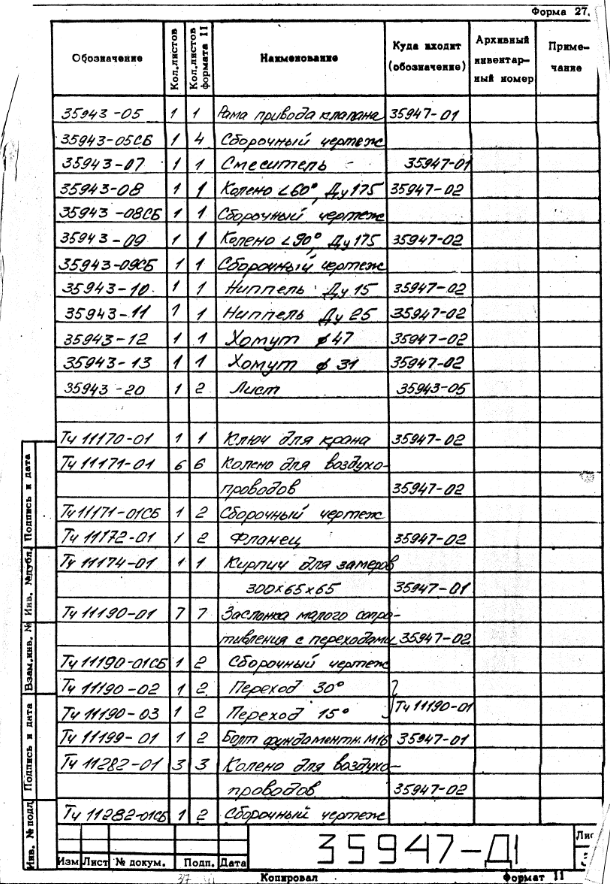 Форма 27.
Обозначение Кол.листов Кол.листов формата 11 Наименование Куда входит (обозначение) Архивный инвентар-ный номер Приме-чание
35943-05 1 1 Рама привода клапана 35947-01
35943-05СБ 1 4 Сборочный чертеж
35943-07 1 1 Смеситель - 35947-01
35943-08 1 1 Колено ∠60°, Ду175 35947-02
35943-08СБ 1 1 Сборочный чертеж
35943-09 1 1 Колено ∠90°, Ду175 35947-02
35943-09СБ 1 1 Сборочный чертеж
35943-10 1 1 Ниппель Ду15 35947-02
35943-11 1 1 Ниппель Ду25 35947-02
35943-12 1 1 Хомут ø47 35947-02
35943-13 1 1 Хомут ø31 35947-02
35943-20 1 2 Лист 35943-05
Тч 11170-01 1 1 Ключ для крана 35947-02
Тч 11171-01 6 6 Колено для воздухо-
проводов 35947-02
Тч 11171-01СБ 1 2 Сборочный чертеж
Тч 11172-01 1 2 Фланец 35947-02
Тч 11174-01 1 1 Кирпич для замеров
300×65×65 35947-01
Тч 11190-01 7 7 Заслонка малого сопро-
тивления с переходами 35947-02
Тч 11190-01СБ 1 2 Сборочный чертеж
Тч 11190-02 1 2 Переход 30°
Тч 11190-03 1 2 Переход 15° Тч 11190-01
Тч 11199-01 1 2 Болт фундаментн. М16 35947-01
Тч 11282-01 3 3 Колено для воздухо-
проводов 35947-02
Тч 11282-01СБ 1 2 Сборочный чертеж
Подпись и дата
Инв. №дубл.
Взам.инв. №
Подпись и дата
Инв. № подл.
35947-Д1
Изм Лист № докум. Подп. Дата
Копировал Формат 11